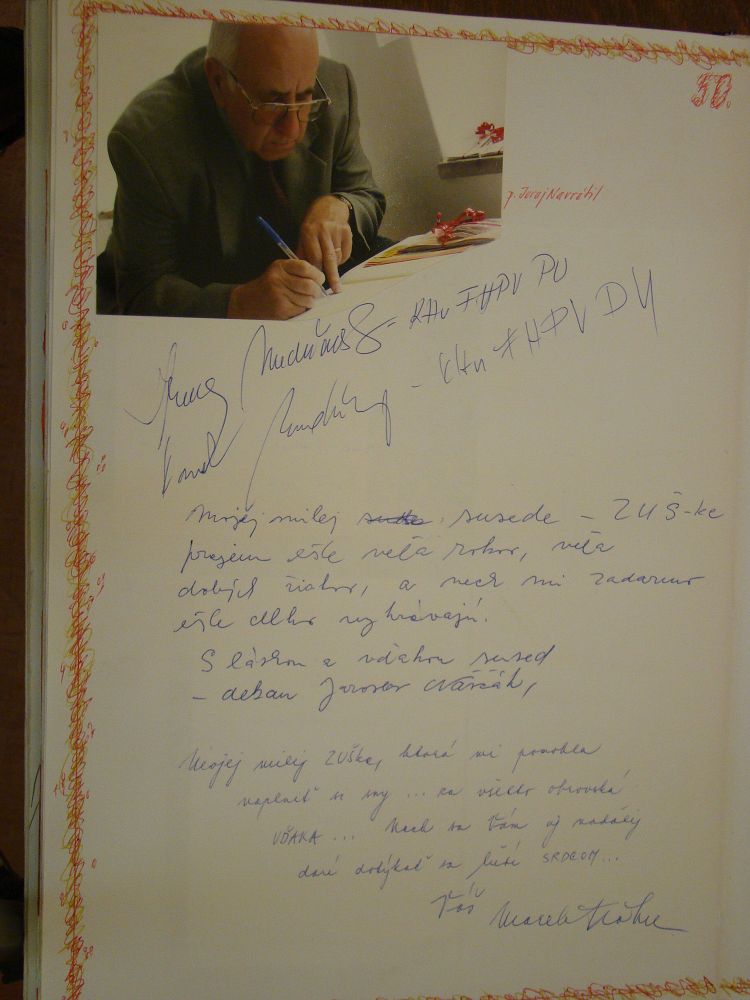 50.
p. Juraj Navrátil
- KHu FHPV PU
- KHu FHPV PU
Mojej milej susede - ZUŠ-ke
prajem ešte veľa rokov, veľa
dobrých žiakov, a nech mi zadarmo
ešte dlho vyhrávajú.
S láskou a vďakou sused
- dekan Jaroslav
Mojej milej ZUŠke, ktorá mi pomohla
naplniť si sny ... za všetko obrovská
VĎAKA ... Nech sa Vám aj naďalej
darí dotýkať sa ľudí SRDCOM...
Váš Marek